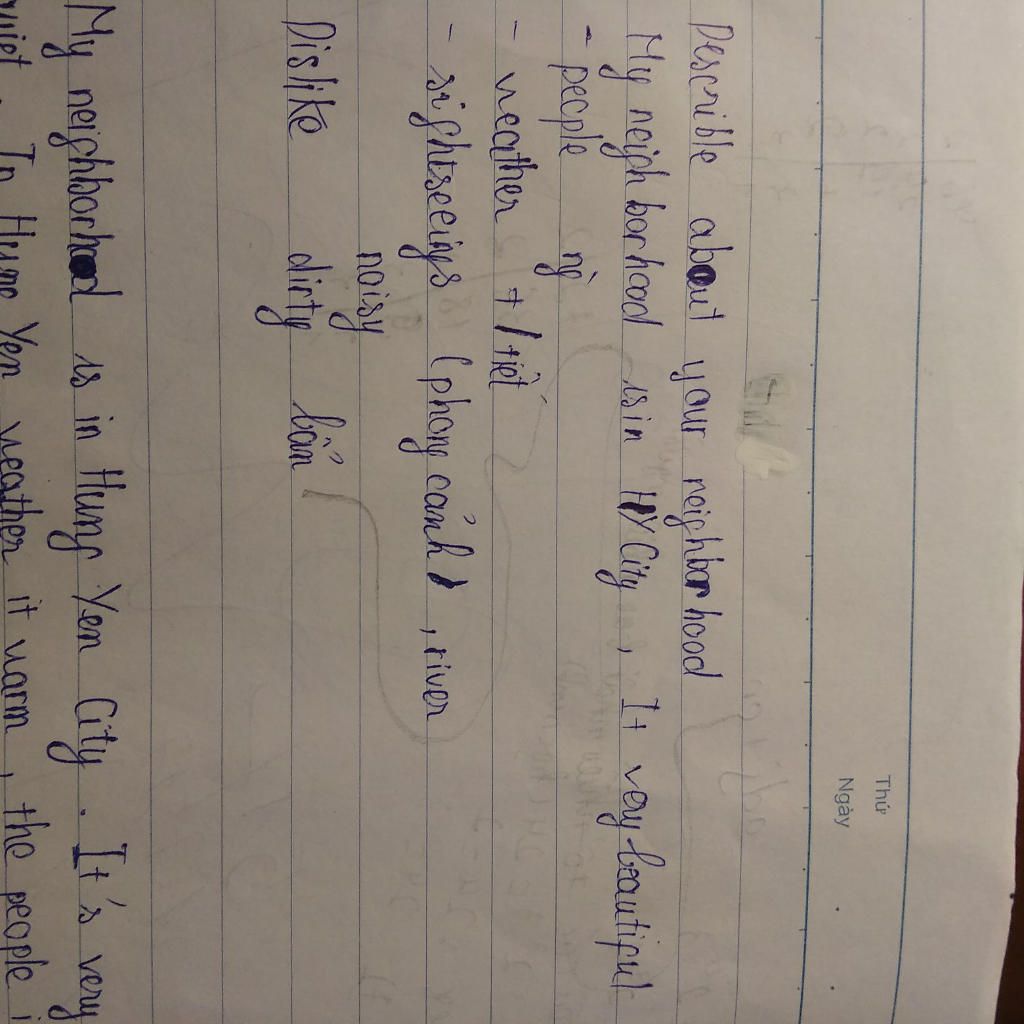 Thứ
Ngày
Describle about your neighborhood
My neighborhood is in HY City, It very beautiful
- people ng
- weather t/tiết
- sightseeings (phong cảnh), river
noisy
Dislike dirty bẩn
My neighborhood is in Hung Yen City. It's very
quiet. In Hung Yen weather it warm, the people i